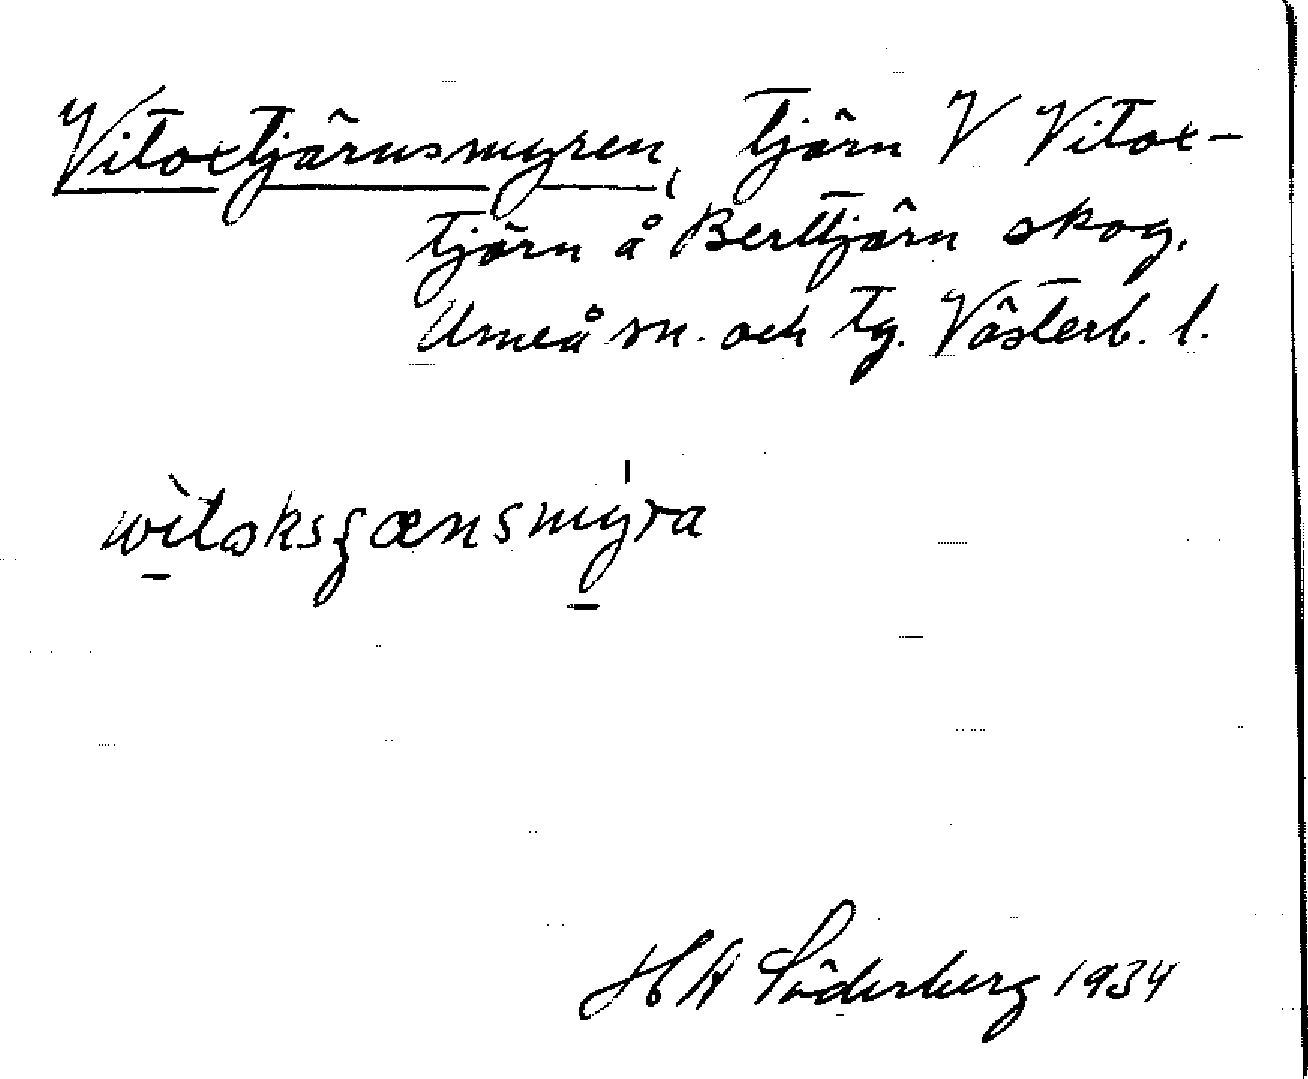 Vitoxtjärnsmyren, tjärn V Vitox-
tjärn å Berttjärn skog.
Umeå sn. och tg. Västerb. l.
wìtoksʒænsmýra
H A Söderberg 1934